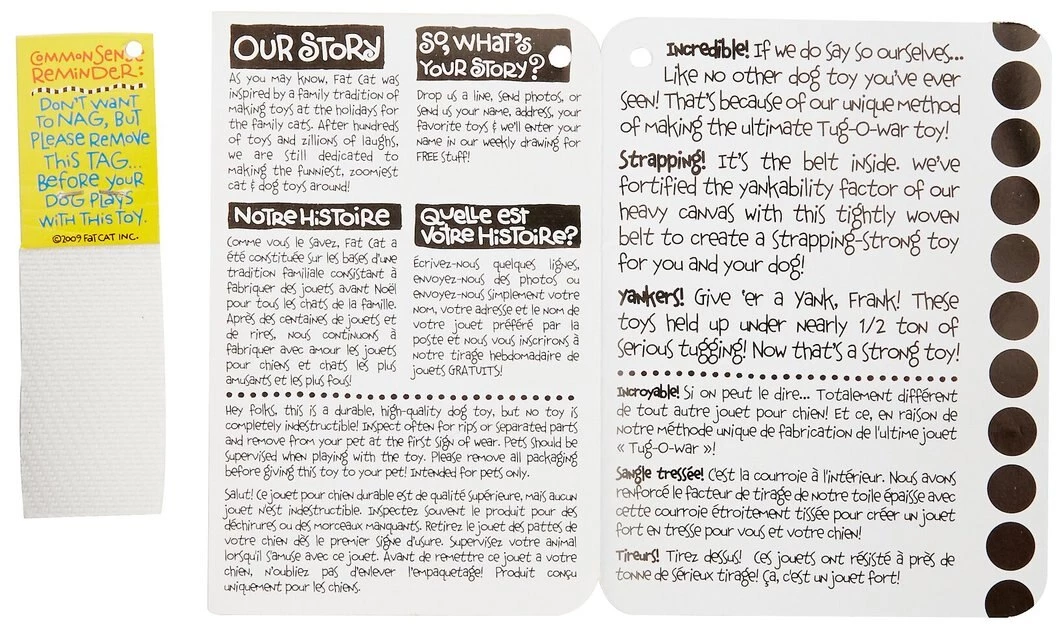 Common Sense
Reminder:
Don't want
to nag, but
please remove
this tag...
before your
dog plays
with this toy.
©2009 Fat Cat Inc.
Our Story
As you may know, Fat Cat was
inspired by a family tradition of
making toys at the holidays for
the family cats. After hundreds
of toys and zillions of laughs,
we are still dedicated to
making the funniest, zoomiest
cat & dog toys around!
So, What's
Your Story?
Drop us a line, send photos, or
send us your name, address, your
favorite toys & we'll enter your
name in our weekly drawing for
FREE Stuff!
Notre Histoire
Comme vous le savez, Fat Cat a
été constituée sur les bases d'une
tradition familiale consistant à
fabriquer des jouets avant Noël
pour tous les chats de la famille.
Après des centaines de jouets et
de rires, nous continuons à
fabriquer avec amour les jouets
pour chiens et chats les plus
amusants et les plus fous!
Quelle est
Votre Histoire?
Écrivez-nous quelques lignes,
envoyez-nous des photos ou
envoyez-nous simplement votre
nom, votre adresse et le nom de
votre jouet préféré par la
poste et nous vous inscrirons à
notre tirage hebdomadaire de
jouets GRATUITS!
Hey folks, this is a durable, high-quality dog toy, but no toy is
completely indestructible! Inspect often for rips or separated parts
and remove from your pet at the first sign of wear. Pets should be
supervised when playing with the toy. Please remove all packaging
before giving this toy to your pet! Intended for pets only.
Salut! Ce jouet pour chien durable est de qualité supérieure, mais aucun
jouet n'est indestructible. Inspectez souvent le produit pour des
déchirures ou des morceaux manquants. Retirez le jouet des pattes de
votre chien dès le premier signe d'usure. Supervisez votre animal
lorsqu'il s'amuse avec ce jouet. Avant de remettre ce jouet a votre
chien, n'oubliez pas d'enlever l'empaquetage! Produit conçu
uniquement pour les chiens.
Incredible! If we do say so ourselves...
Like no other dog toy you've ever
seen! That's because of our unique method
of making the ultimate Tug-O-war toy!
Strapping! It's the belt inside. we've
fortified the yankability factor of our
heavy canvas with this tightly woven
belt to create a strapping-strong toy
for you and your dog!
Yankers! Give 'er a yank, Frank! These
toys held up under nearly 1/2 ton of
serious tugging! Now that's a strong toy!
Incroyable! Si on peut le dire... Totalement différent
de tout autre jouet pour chien! Et ce, en raison de
notre méthode unique de fabrication de l'ultime jouet
« Tug-O-war »!
Sangle tressée! C'est la courroie à l'intérieur. Nous avons
renforcé le facteur de tirage de notre toile épaisse avec
cette courroie étroitement tissée pour créer un jouet
fort en tresse pour vous et votre chien!
Tireurs! Tirez dessus! Ces jouets ont résisté à près de
tonne de sérieux tirage! Ça, c'est un jouet fort!